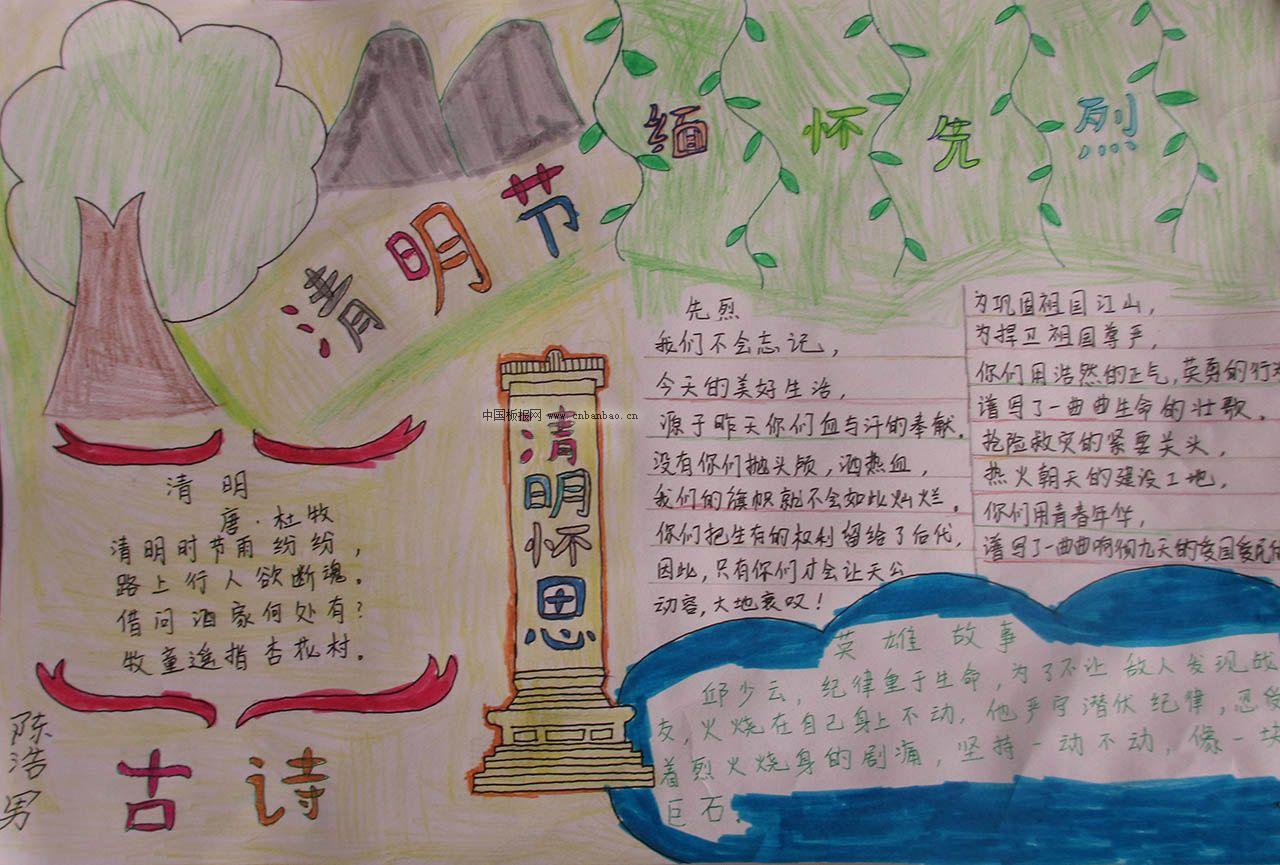 清明节
缅怀先烈
清明
唐·杜牧
清明时节雨纷纷，
路上行人欲断魂。
借问酒家何处有？
牧童遥指杏花村。
古诗
陈浩男
中国板报网 www.cnbanbao.cn
清明怀思
先烈
我们不会忘记，
今天的美好生活，
源于昨天你们血与汗的奉献。
没有你们抛头颅，洒热血，
我们的旗帜就不会如此灿烂。
你们把生存的权利留给了后代，
因此，只有你们才会让天公
动容，大地哀叹！
为巩固祖国江山，
为捍卫祖国尊严，
你们用浩然的正气，英勇的行为
谱写了一曲曲生命的壮歌。
抢险救灾的紧要关头，
热火朝天的建设工地，
你们用青春年华，
谱写了一曲曲响彻九天的爱国爱民
英雄故事
邱少云，纪律重于生命，为了不让敌人发现战
友，火烧在自己身上不动，他严守潜伏纪律，忍受
着烈火烧身的剧痛，坚持一动不动，像一块
巨石。